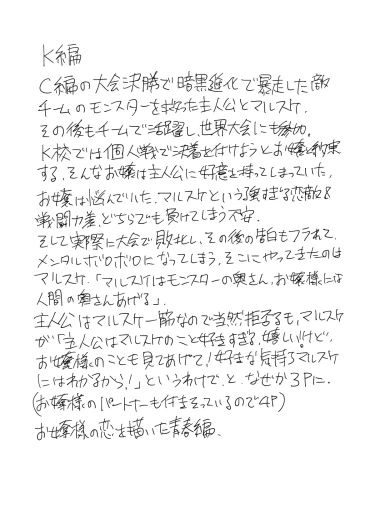 K編
C編の大会決勝で暗黒進化で暴走した敵
チームのモンスターを救った主人公とマルスケ.
その後もチームで活躍し、世界大会にも参加。
K校では個人戦で決着を付けようとお嬢と約束
する、そんなお嬢は主人公に好意を持ってしまっていた,
お嬢は悩んでいた、マルスケという強すぎる恋敵&
戦闘力差、どちらでも負けてしまう不安.
そして実際に大会で敗北し、その後の告白もフラれて,
メンタルボロボロになってしまう、そこにやってきたのは
マルスケ.「マルスケはモンスターの奥さん、お嬢様には
人間の奥さんあげる」.
主人公はマルスケ一筋なので当然拒否るも、マルスケ
が「主人公はマルスケのこと好きすぎる,嬉しい!けど,
お嬢様のことも見てあげて!好きな気持ちマルスケ
にはわかるから!」というわけで、と なぜか3Pに.
(お嬢様のパートナーも付きそっているので4P)
お嬢様の恋を描いた青春編、